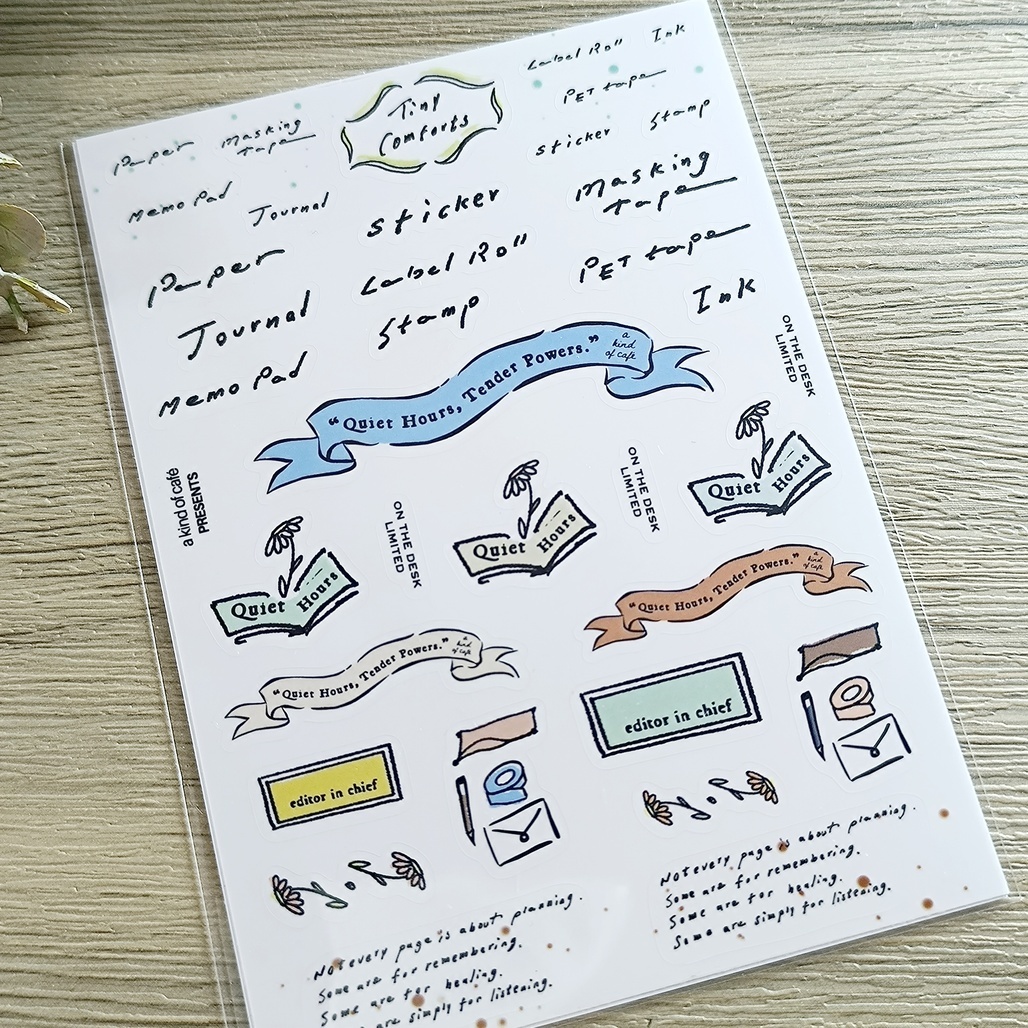 Label Roll
Ink
PET tape
Paper
Masking
tape
Tiny
Comforts
sticker
Stamp
Memo Pad
Journal
sticker
Masking
tape
Paper
Label Roll
PET tape
Journal
Stamp
Ink
Memo Pad
"Quiet Hours, Tender Powers."
a
kind
of café
ON THE DESK
LIMITED
a kind of café
PRESENTS
ON THE DESK
LIMITED
ON THE DESK
LIMITED
Quiet Hours
Quiet Hours
Quiet Hours
"Quiet Hours, Tender Powers."
a
kind
of café
"Quiet Hours, Tender Powers."
a
kind
of café
editor in chief
editor in chief
Not every page is about planning.
Some are for remembering.
Some are for healing.
Some are simply for listening.
Not every page is about planning.
Some are for remembering.
Some are for healing.
are simply for listening.